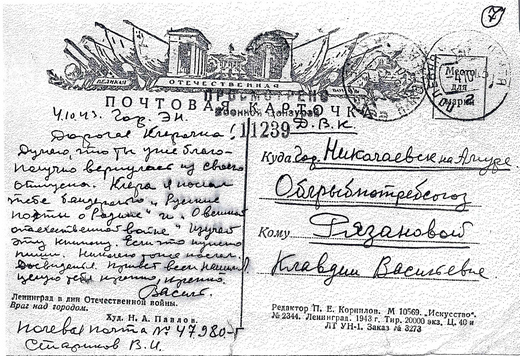 7
ВЕЛИКАЯ ОТЕЧЕСТВЕННАЯ
ПРОСМОТРЕНО
ПОЧТОВАЯ КАРТОЧКА
Военной Цензурой
11239
Место для марки
4.10.43. Гор. Эн.
Дорогая Клерочка!
Думаю, что ты уже благо-
получно вернулась из своего
отпуска. Клера я послал
тебе бандеролью „Русские
поэты о Родине" и „О великой
отечественной войне" Изучай
эту книжку. Если что нужно
пиши. Николаю тоже послал.
Досвидания. Привет всем нашим.
целую тебя крепко, крепко.
Васил.
Ленинград в дни Отечественной войны.
Враг над городом.
Худ. Н. А. Павлов.
Полевая почта № 47980-Г
Стариков В.И.
Д.В.К.
Куда Гор. Николаевск на Амуре
Облрыбпотребсоюз
Кому Рязановой
Клавдии Васильевне
Редактор П. Е. Корнилов. М 10569. „Искусство"
№ 2344. Ленинград. 1943 г. Тир. 20000 экз. Ц. 40 к
ЛТ УН-1. Заказ № 3273